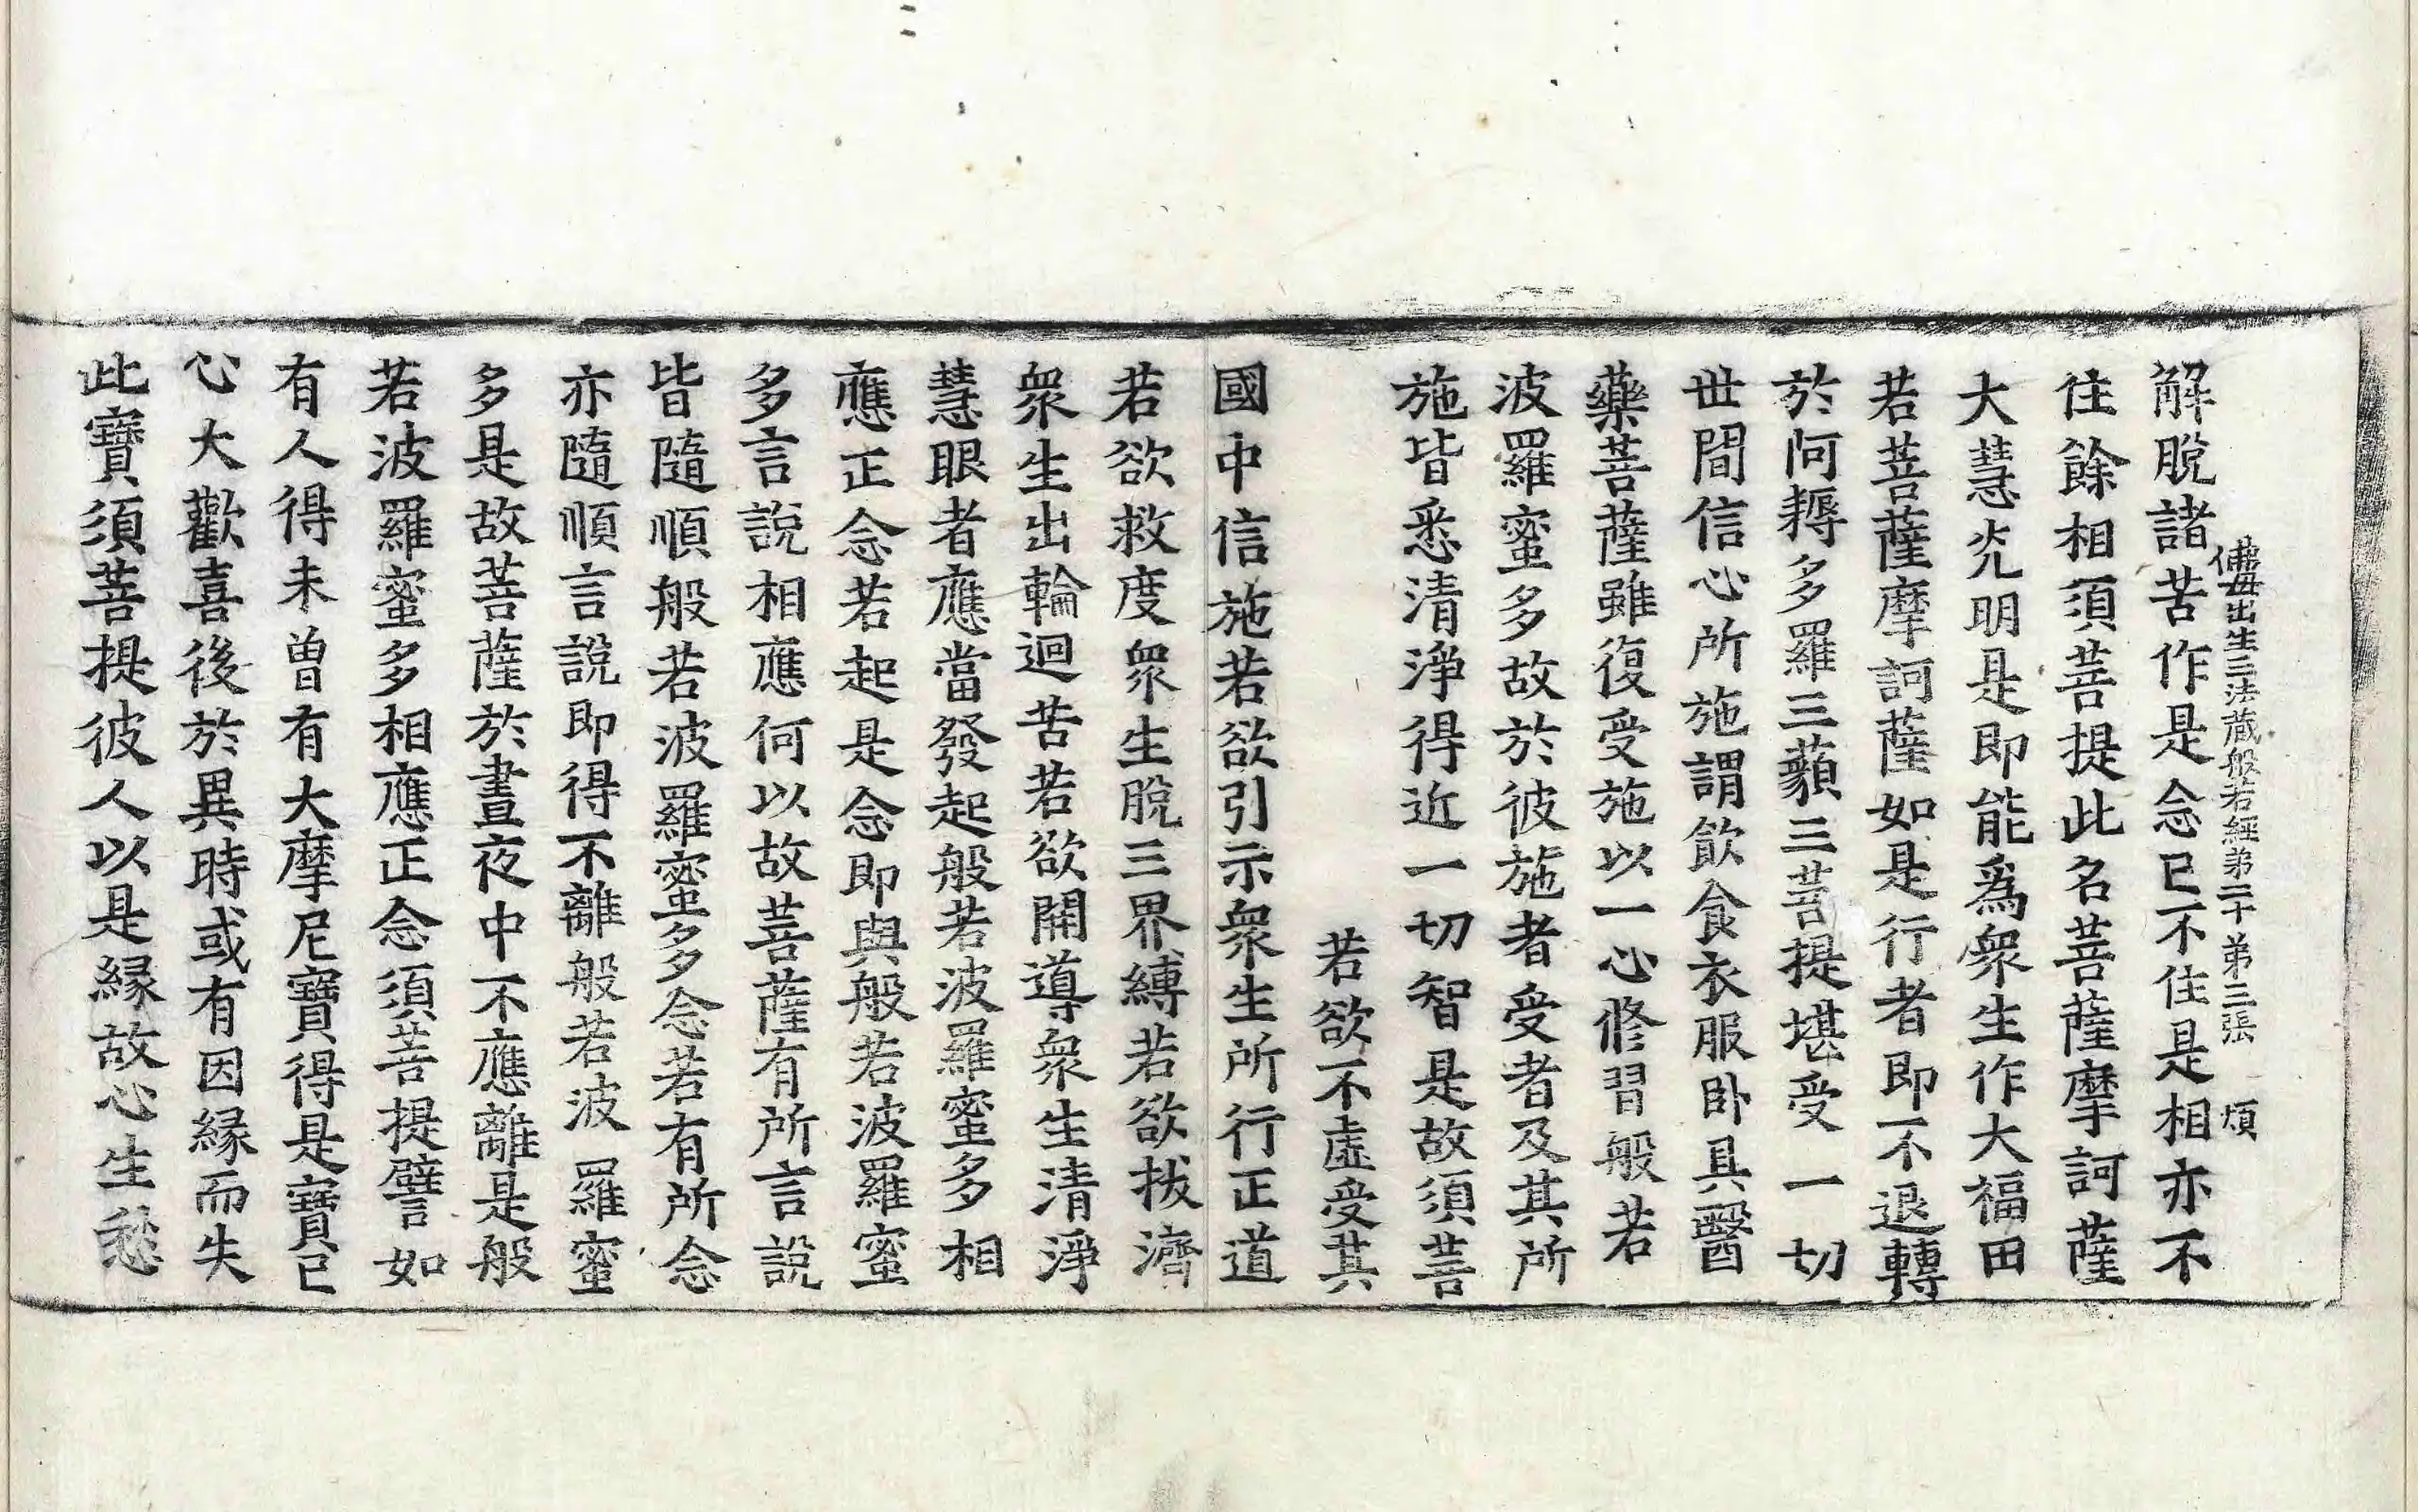 佛母出生三法藏般若經第二十第三張 煩
解脫諸苦作是念已不住是相亦不
住餘相須菩提此名菩薩摩訶薩
大慧光明是即能爲衆生作大福田
若菩薩摩訶薩如是行者即不退轉
於阿耨多羅三藐三菩提堪受一切
世間信心所施謂飮食衣服卧具醫
藥菩薩雖復受施以一心修習般若
波羅蜜多故於彼施者受者及其所
施皆悉清淨得近一切智是故須菩
若欲不虛受其
國中信施若欲引示衆生所行正道
若欲救度衆生脫三界縛若欲拔濟
衆生出輪迴苦若欲開導衆生清淨
慧眼者應當發起般若波羅蜜多相
應正念若起是念即與般若波羅蜜
多言說相應何以故菩薩有所言說
皆隨順般若波羅蜜多念若有所念
亦隨順言說即得不離般若波羅蜜
多是故菩薩於晝夜中不應離是般
若波羅蜜多相應正念須菩提譬如
有人得未曾有大摩尼寶得是寶已
心大歡喜後於異時或有因緣而失
此寶須菩提彼人以是緣故心生愁